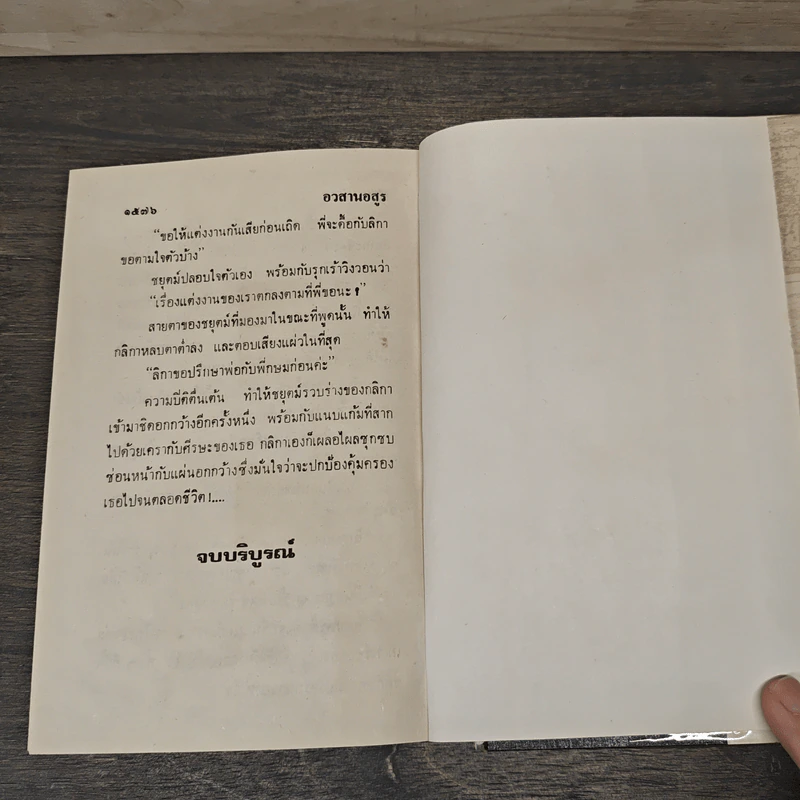 ๑๕๗๖ อวสานอสูร
“ขอให้แต่งงานกันเสียก่อนเถิด พี่จะดื้อกับลิกา
ขอตามใจตัวบ้าง”
ชยุตม์ปลอบใจตัวเอง พร้อมกับรุกเร้าวิงวอนว่า
“เรื่องแต่งงานของเราตกลงตามที่พี่ขอนะ !”
สายตาของชยุตม์ที่มองมาในขณะที่พูดนั้น ทำให้
กลิกาหลบตาต่ำลง และตอบเสียงแผ่วในที่สุด
“ลิกาขอปรึกษาพ่อกับพี่กษมก่อนค่ะ”
ความปีติตื่นเต้น ทำให้ชยุตม์รวบร่างของกลิกา
เข้ามาชิดอกกว้างอีกครั้งหนึ่ง พร้อมกับแนบแก้มที่สาก
ไปด้วยเครากับศีรษะของเธอ กลิกาเองก็เผลอไผลซุกซบ
ซ่อนหน้ากับแผ่นอกกว้างซึ่งมั่นใจว่าจะปกป้องคุ้มครอง
เธอไปจนตลอดชีวิต!....
จบบริบูรณ์